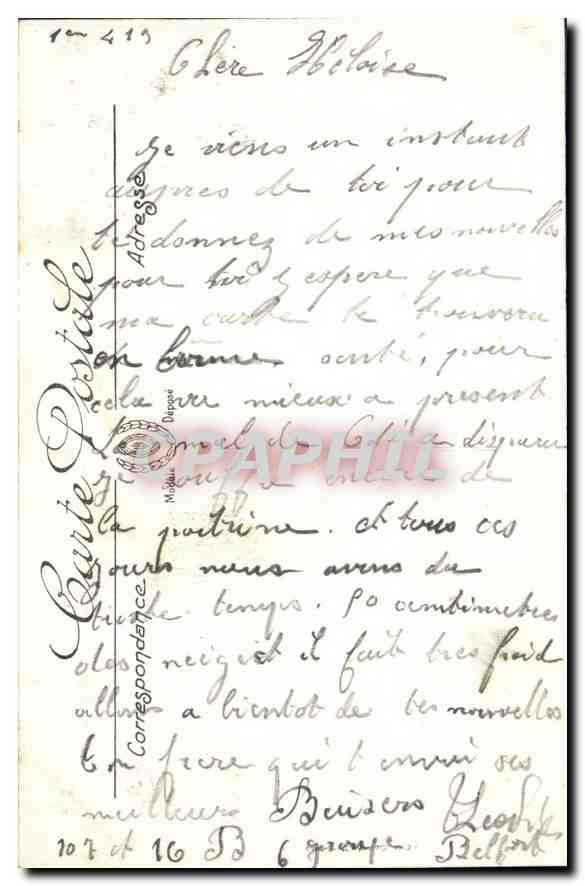 1er 4 19
Chere Heloise
Je viens un instant
aupres de toi pour
te donnez de mes nouvelles
pour toi j espere que
ma carte te trouvera
en bonne santé, pour
cela va mieux a present
le mal de Coté a disparu
Je souffre encore de
la poitrine. et tous ces
jours nous avons du
temps. 50 centimetres
des neige et il fait tres froid
allons a bientot de tes nouvelles
ton frere qui t envoi ses
meilleurs Baisers
107 et 16 B 6 groupe. Belfort
Carte Postale
Correspondance
Adresse
Modèle Déposé
CPAPHIL